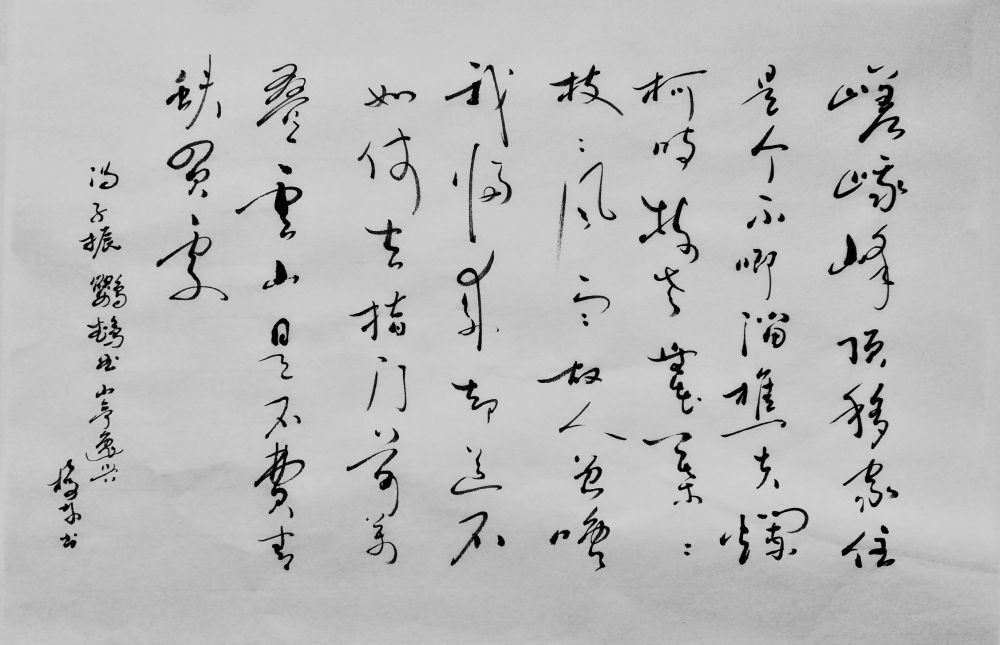 嵯峨峰顶移家住
是个不唧溜樵父爛
柯时树老無花叶〻
枝〻风雨故人曾唤
我归来却道不
如休去指门前万
叠雲山是不費青
蚨买处
冯子振 鸚鵡曲 山亭逸兴
书